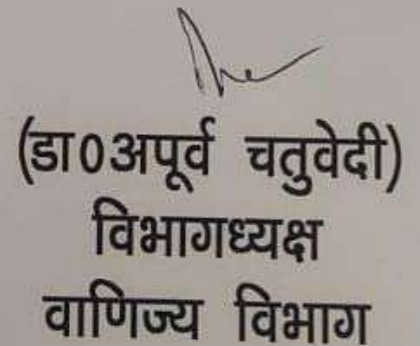 (डा0अपूर्व चतुर्वेदी)
विभागध्यक्ष
वाणिज्य विभाग